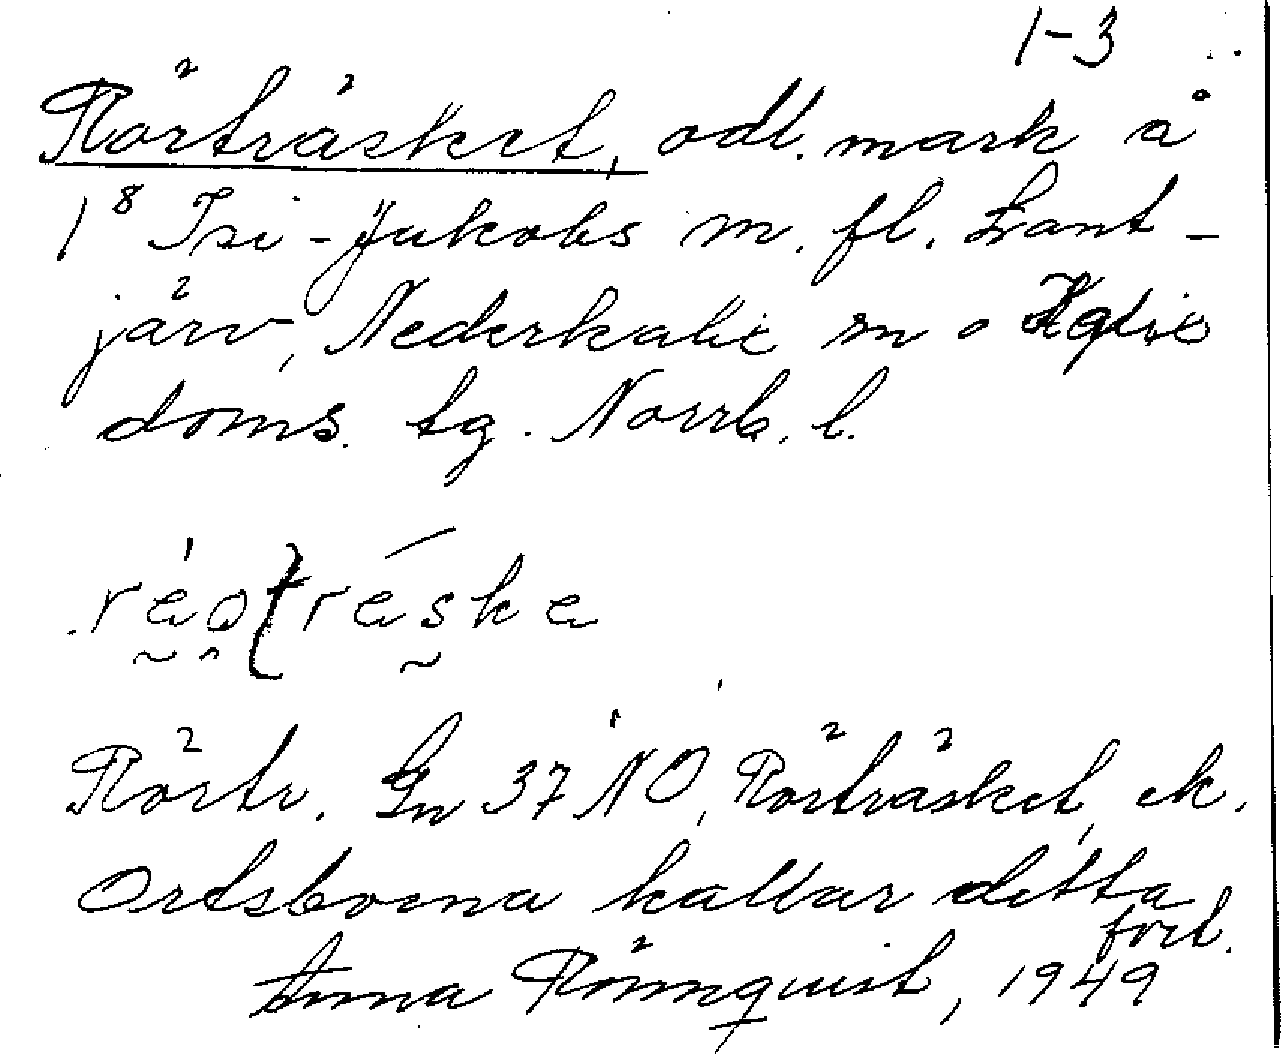 1-3
Rörträsket, odl. mark å
1⁸ Isi-Jukobs m. fl. Lant-
järv, Nederkalix sn o
doms. tg. Norrb. l.
Rörtr. Gn 37 NO, Rörträsket, ek.
Ortsborna kallar detta
forts.
Anna Rönnquist, 1949